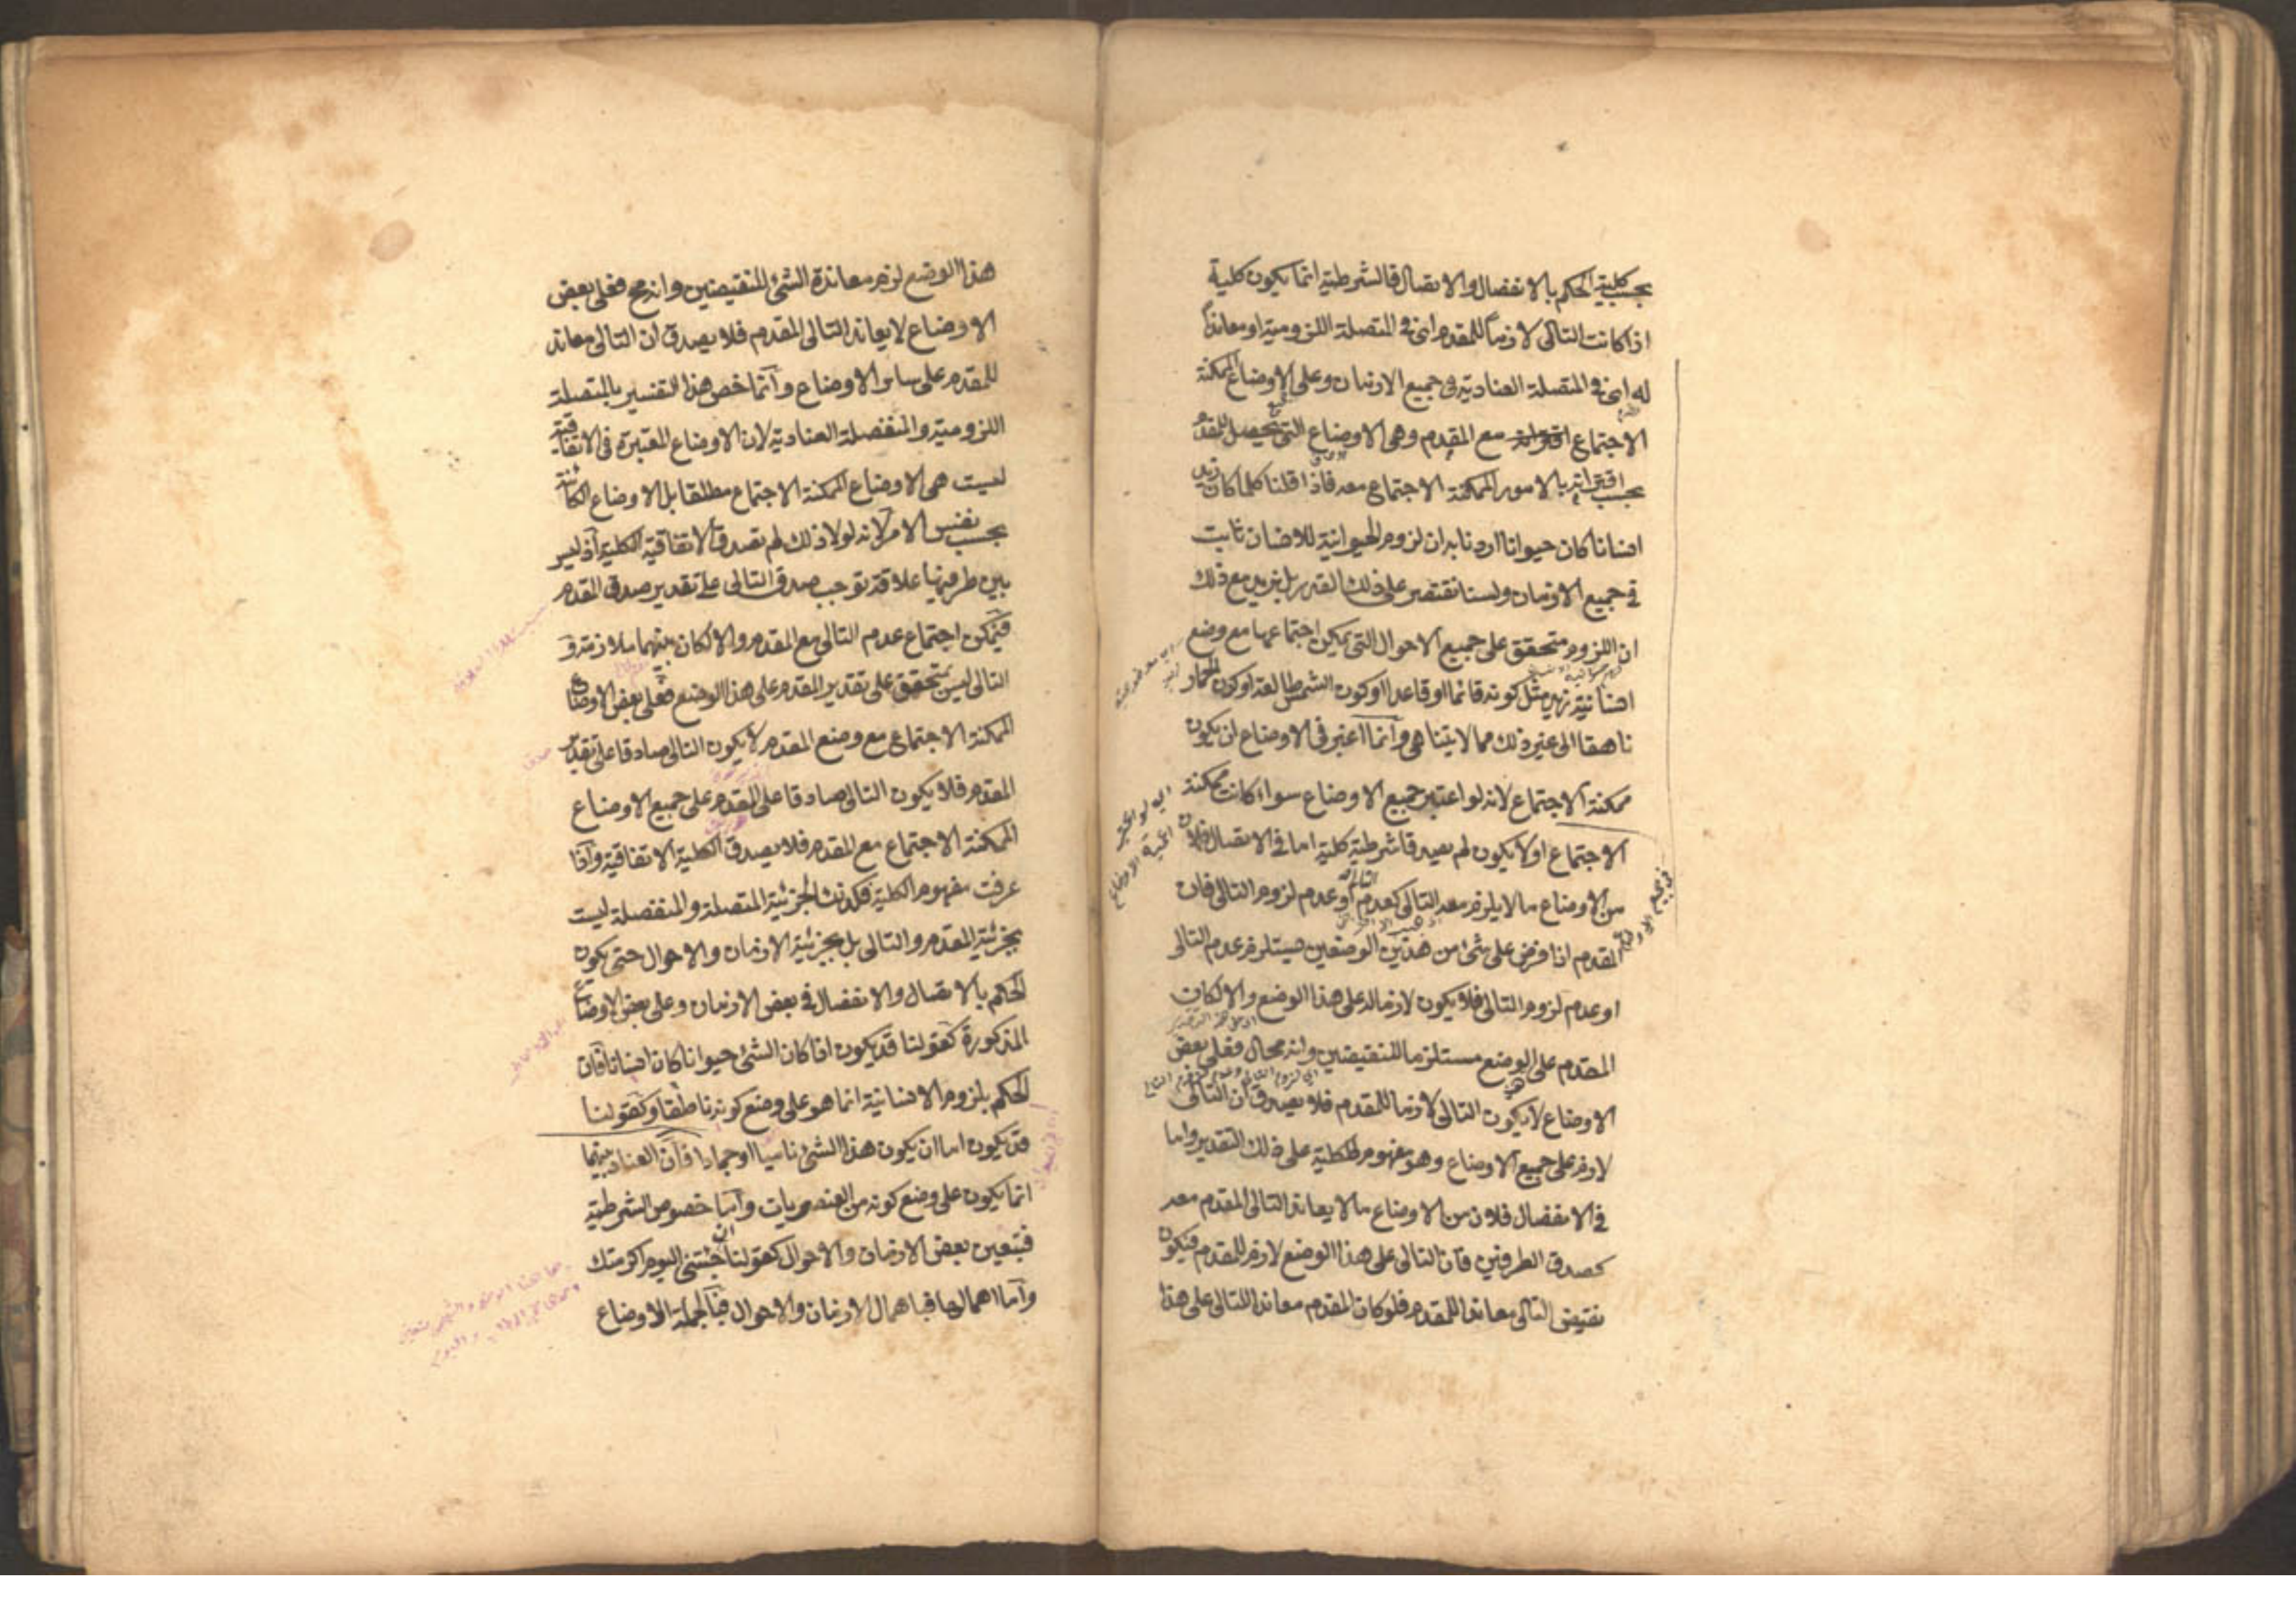 بحسب كلية الحكم بالانفصال والاتصال فالشرطية انما يكون كلية
اذا كانت التالى لازماً للمقدم اى فى المتصلة اللزومية او معانداً
له اى فى المتصلة العنادية فى جميع الازمان وعلى الاوضاع الممكنة
الاجتماع مع المقدم وهى الاوضاع التى تحصل للمقدم
بحسب اقترانه بالامور الممكنة الاجتماع معه فاذا قلنا كلما كان زيد
انسانا كان حيوانا اردنا به ان لزوم الحيوانية للانسان ثابت
فى جميع الازمان ولسنا نقتصر على ذلك القدر بل نريد مع ذلك
ان اللزوم متحقق على جميع الاحوال التى يمكن اجتماعها مع وضع
انسانية زيد مثل كونه قائما او قاعدا او كون الشمس طالعة او كون الحمار
ناهقا الى غير ذلك مما لا يتناهى وانما اعتبر فى الاوضاع ان يكون
ممكنة الاجتماع لانه لو اعتبر جميع الاوضاع سواء كانت ممكنة
الاجتماع او لا يكون لم يصدق شرطية كلية اما فى الاتصال فلان
من الاوضاع ما لا يلزم معه التالى كعدم التالى او عدم لزوم التالى فان
المقدم اذا فرض على شئ من هذين الوضعين يستلزم عدم التالى
او عدم لزوم التالى فلا يكون لازما له على هذا الوضع والا لكان
المقدم على الوضع مستلزما للنقيضين وانه محال فعلى بعض
الاوضاع لا يكون التالى لازما للمقدم فلا يصدق ان التالى
لازم على جميع الاوضاع وهو مفهوم الكلية على ذلك التقدير واما
فى الانفصال فلان من الاوضاع ما لا يعاند التالى المقدم معه
كصدق الطرفين فان التالى على هذا الوضع لازم للمقدم فيكون
نقيض التالى معاندا للمقدم فلو كان المقدم معاندا للتالى على هذا
هذا الوضع لزم معاندة الشئ للنقيضين وانه مح فعلى بعض
الاوضاع لا يعاند التالى المقدم فلا يصدق ان التالى معاند
للمقدم على سائر الاوضاع وانما خص هذا التفسير بالمتصلة
اللزومية والمنفصلة العنادية لان الاوضاع المعتبرة فى الاتفاقية
ليست هى الاوضاع الممكنة الاجتماع مطلقا بل الاوضاع الكائنة
بحسب نفس الامر لانه لولا ذلك لم تصدق الاتفاقية الكلية اذ ليس
بين طرفيها علاقة توجب صدق التالى على تقدير صدق المقدم
فيمكن اجتماع عدم التالى مع المقدم والا لكان بينهما ملازمة و
التالى ليس بمتحقق على تقدير المقدم على هذا الوضع فعلى بعض الاوضاع
الممكنة الاجتماع مع وضع المقدم لا يكون التالى صادقا على تقدير
المقدم فلا يكون التالى صادقا على المقدم على جميع الاوضاع
الممكنة الاجتماع مع المقدم فلا يصدق الكلية الاتفاقية واذا
عرفت مفهوم الكلية فكذلك الجزئية المتصلة والمنفصلة ليست
بجزئية المقدم والتالى بل بجزئية الازمان والاحوال حتى يكون
الحكم بالاتصال والانفصال فى بعض الازمان وعلى بعض الاوضاع
المذكورة كقولنا قد يكون اذا كان الشئ حيوانا كان انسانا فان
الحكم بلزوم الانسانية انما هو على وضع كونه ناطقا وكقولنا
قد يكون اما ان يكون هذا الشئ ناميا او جمادا فان العناد بينهما
انما يكون على وضع كونه من العنصريات واما خصوص الشرطية
فبتعين بعض الازمان والاحوال كقولنا ان جئتنى اليوم اكرمتك
واما اهمالها فباهمال الازمان والاحوال فبالجملة الاوضاع